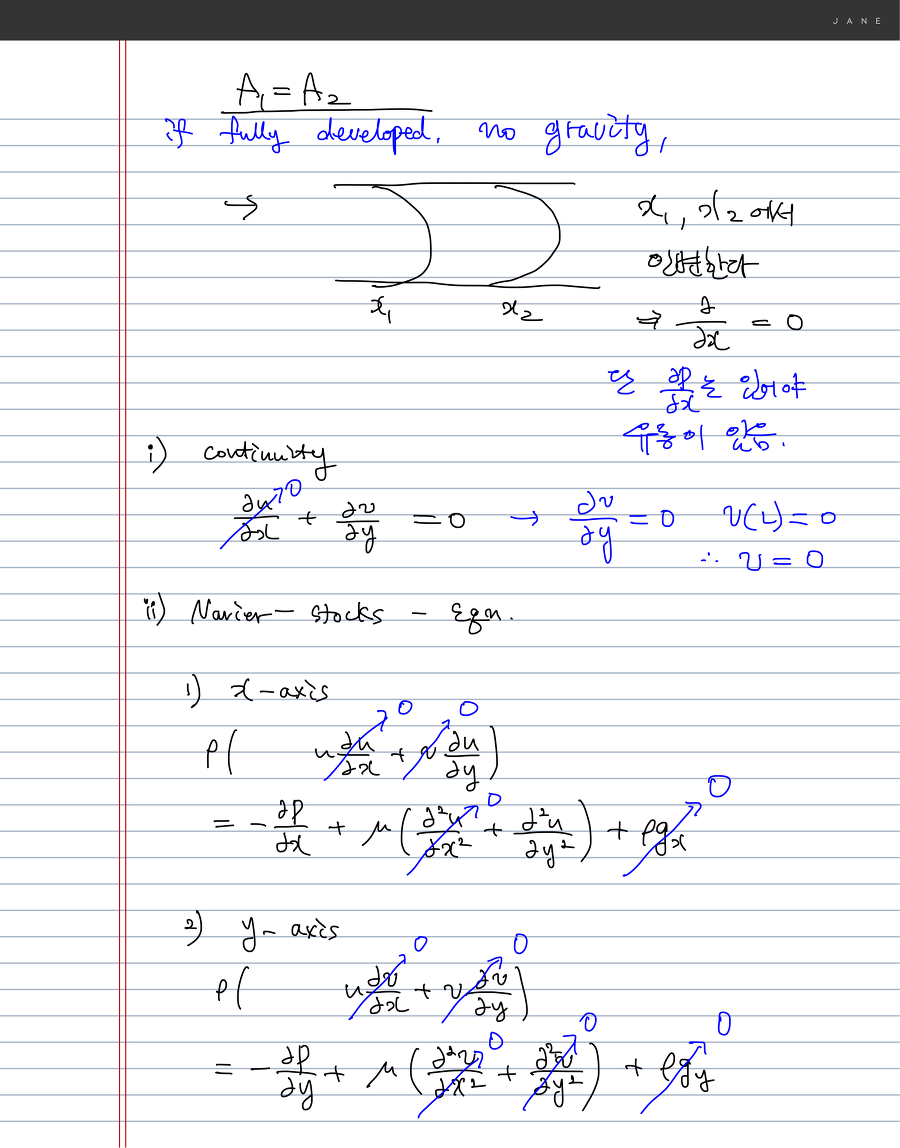 JANE
A₁ = A₂
if fully developed, no gravity,
→
x₁, x₂에서
일변한다
x₁ x₂
⇒ ∂/∂x = 0
단 ∂P/∂x는 있어야
유동이 있음.
i) continuity
∂u/∂x ↗0 + ∂v/∂y = 0 → ∂v/∂y = 0 v(L) = 0
∴ v = 0
ii) Navier - stocks - Eqn.
1) x-axis
ρ( u ∂u/∂x ↗0 + v ↗0 ∂u/∂y )
= - ∂P/∂x + μ ( ∂²u/∂x² ↗0 + ∂²u/∂y² ) + ρgₓ ↗0
2) y- axis
ρ( u ∂v/∂x ↗0 + v ∂v/∂y ↗0 )
= - ∂P/∂y + μ ( ∂²v/∂x² ↗0 + ∂²v/∂y² ↗0 ) + ρg_y ↗0